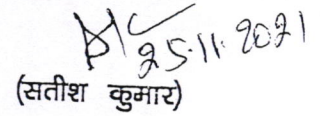 25.11.2021
(सतीश कुमार)